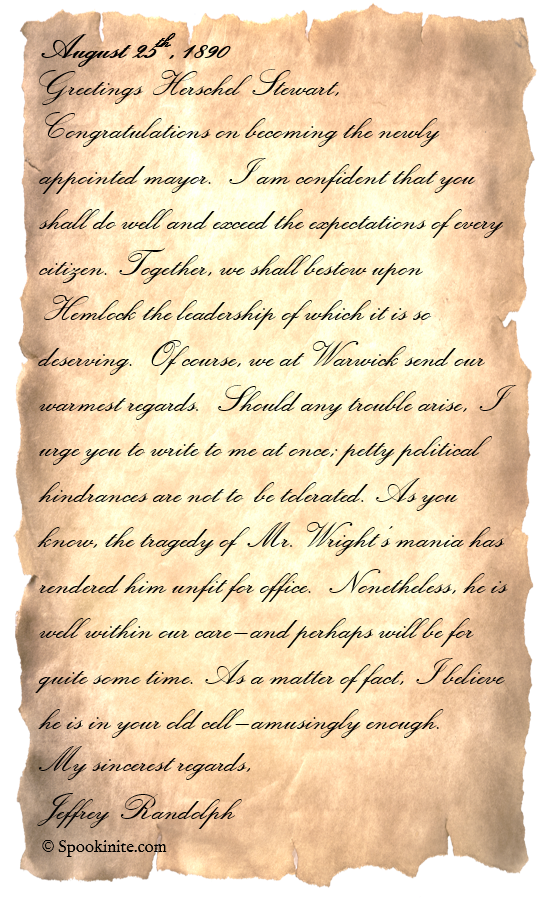 August 25th, 1890
Greetings Herschel Stewart,
Congratulations on becoming the newly
appointed mayor. I am confident that you
shall do well and exceed the expectations of every
citizen. Together, we shall bestow upon
Hemlock the leadership of which it is so
deserving. Of course, we at Warwick send our
warmest regards. Should any trouble arise, I
urge you to write to me at once; petty political
hindrances are not to be tolerated. As you
know, the tragedy of Mr. Wright's mania has
rendered him unfit for office. Nonetheless, he is
well within our care—and perhaps will be for
quite some time. As a matter of fact, I believe
he is in your old cell—amusingly enough.
My sincerest regards,
Jeffrey Randolph
© Spookinite.com